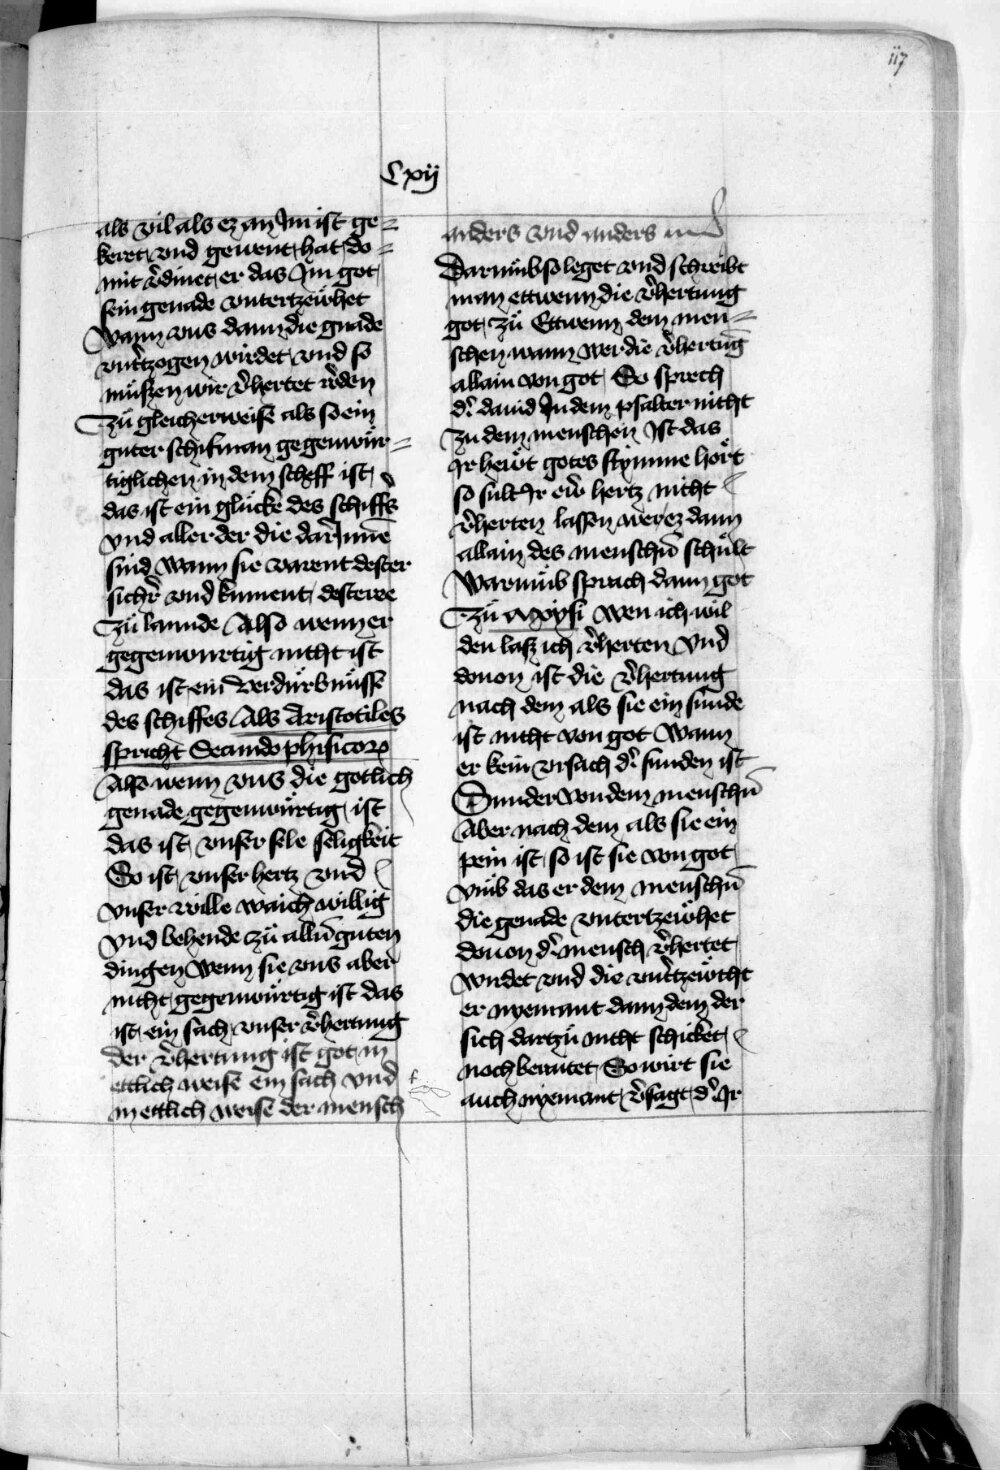 117
Cxij
als vil als ez an Jm ist ge=
keret vnd gewent hat do=
mit v̕dinet er das Jm got
sein genade vntertzeẅhet
Wann vns dann die gnade
vnt̕tzogen wirdet vnd so
müßzen wir v̕hertet w̕den
Zů gleicherweise als so ein
guter schifman gegenwür=
tiglichen in dem scheff ist
das ist ein glücke des schiffs
vnd aller der die dar Jnne
sind wann sie varent dester
sich̕r vnd kument desteree
Zů lannde Also wenn er
gegenwurtig nicht ist
das ist ein verdürbnüsse
des schiffes Als Aristotiles
spricht Secundo phisicorꝫ
Also wenn vns die gotlich
genade gegenwürtig ist
das ist vnser sele seligkeit
So ist vnser hertz vnd
vnser wille waich willig
vnd behende zů allen̄ guten
dingen Wenn sie vns aber
nicht gegenwürtig ist das
ist ein sach vnser v̕hertung
der v̕hertung ist got in
ettlich weise ein sach vnd
in ettlich weise der mensch
anders vnd anders und
Darumb so leget vnd schreibt
man ettwenn die v̕hertung
got zů Ettwenn dem men=
schen wann wer die v̕hertūg
allain von got So sprech
d̕ dauid Jn dem psalter nicht
Zu dem menschen Jst das
Jr hewt gotes stymme hört
so sült Jr ew̕ hertz nicht
v̕herten lassen wer ez dann
allain des menschen̄ schult
Warumb sprach dann got
Zů Moysi Wen ich wil
den laß ich v̕herten Vnd
douon ist die v̕hertung
nach dem als sie ein sünde
ist nicht von got Wann
er kein vrsach d̕ sunden ist
Sunder von dem menschen̄
Aber nach dem als sie ein
pein ist so ist sie von got
vmb das er dem menschen̄
die genade vntertzeẅhet
douon d̕ mensch v̕hertet
wirdet vnd die vnt̕tzeẅcht
er nyemant dann dem der
sich dartzů nicht schicket
noch beraitet So wirt sie
auch nyemant v̕sagt d̕ Jr